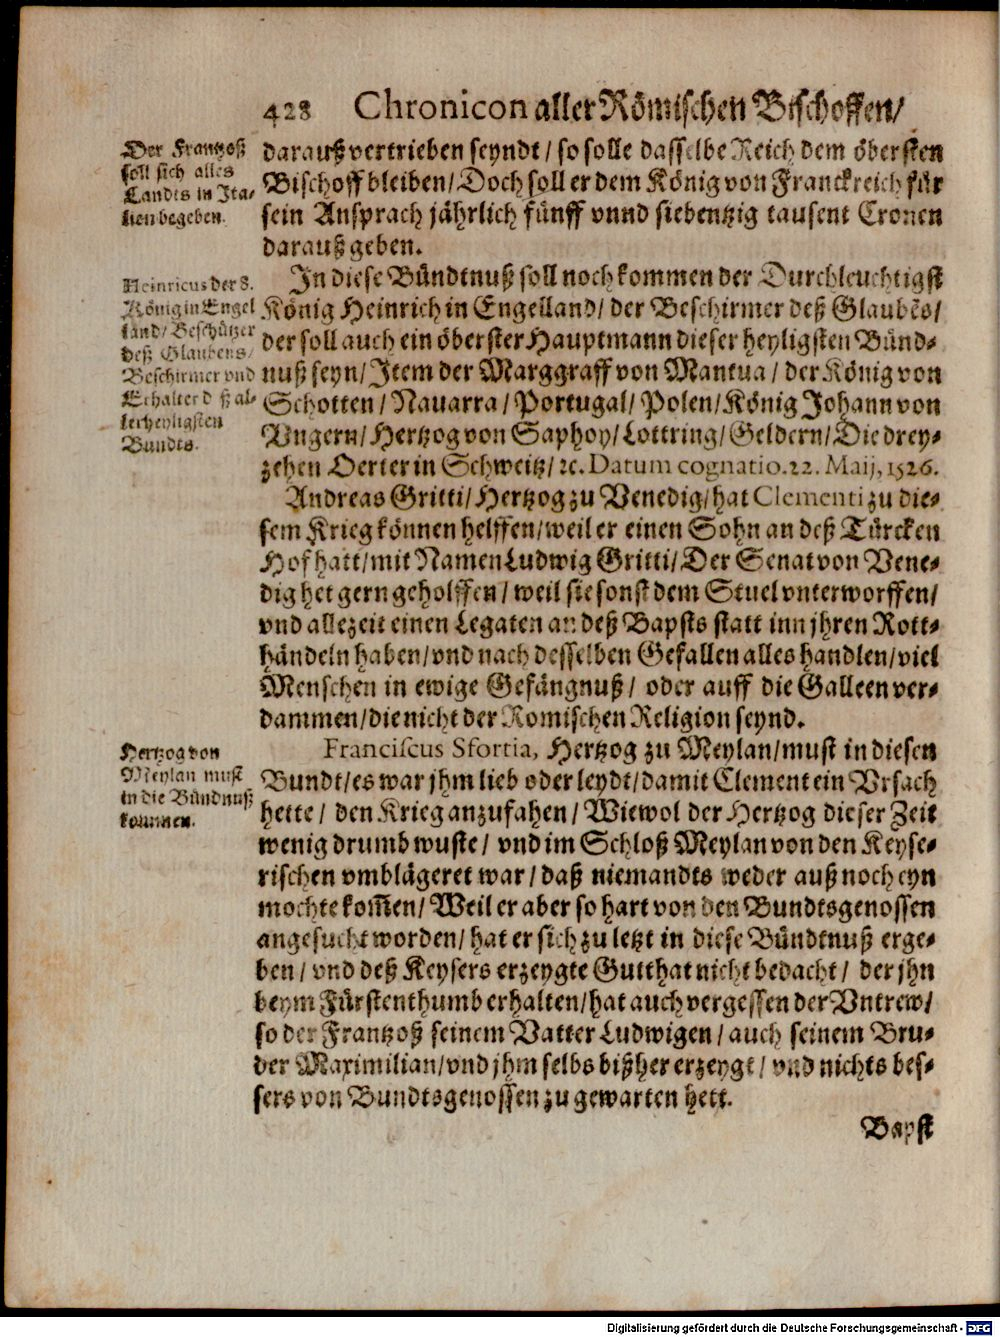 428 Chronicon aller Römischen Bischoffen/
Der Frantzoß
soll sich alles
Landts in Ita-
lien begeben.
darauß vertrieben seyndt / so solle dasselbe Reich dem öbersten
Bischoff bleiben/ Doch soll er dem König von Franckreich für
sein Ansprach jährlich fünff vnnd siebentzig tausent Cronen
darauß geben.
Heinricus der 8.
König in Engel
land/ Beschützer
deß Glaubens/
Beschirmer vnd
Erhalter d ß al-
lerheyligsten
Bundts.
In diese Bündtnuß soll noch kommen der Durchleuchtigst
König Heinrich in Engelland/ der Beschirmer deß Glaubẽs/
der soll auch ein öberster Hauptmann dieser heyligsten Bünd-
nuß seyn/ Item der Marggraff von Mantua / der König von
Schotten / Nauarra / Portugal/ Polen/ König Johann von
Vngern/ Hertzog von Saphoy/ Lottring/ Geldern/ Die drey-
zehen Oerter in Schweitz/ ꝛc. Datum cognatio. 22. Maij, 1526.
Andreas Gritti/ Hertzog zu Venedig/ hat Clementi zu die-
sem Krieg können helffen/ weil er einen Sohn an deß Türcken
Hof hatt/ mit Namen Ludwig Gritti/ Der Senat von Vene-
dig het gern geholffen/ weil sie sonst dem Stuel vnterworffen/
vnd allezeit einen Legaten an deß Bapsts statt inn jhren Rott-
händeln haben/ vnd nach desselben Gefallen alles handlen/ viel
Menschen in ewige Gefängnuß/ oder auff die Galleen ver-
dammen/ die nicht der Romischen Religion seynd.
Hertzog von
Meylan must
in die Bündnuß
kommen.
Franciscus Sfortia, Hertzog zu Meylan/ must in diesen
Bundt/ es war jhm lieb oder leydt/ damit Clement ein Vrsach
hette / den Krieg anzufahen/ Wiewol der Hertzog dieser Zeit
wenig drumb wuste/ vnd im Schloß Meylan von den Keyse-
rischen vmblägeret war/ daß niemandts weder auß noch eyn
mochte kom̃en/ Weil er aber so hart von den Bundtsgenossen
angesucht worden/ hat er sich zu letzt in diese Bündtnuß erge-
ben / vnd deß Keysers erzeygte Gutthat nicht bedacht / der jhn
beym Fürstenthumb erhalten/ hat auch vergessen der Vntrew/
so der Frantzoß seinem Vatter Ludwigen / auch seinem Bru-
der Maximilian/ vnd jhm selbs bißher erzeygt / vnd nichts bes-
sers von Bundtsgenossen zu gewarten hett.
Bapst
Digitalisierung gefördert durch die Deutsche Forschungsgemeinschaft - DFG